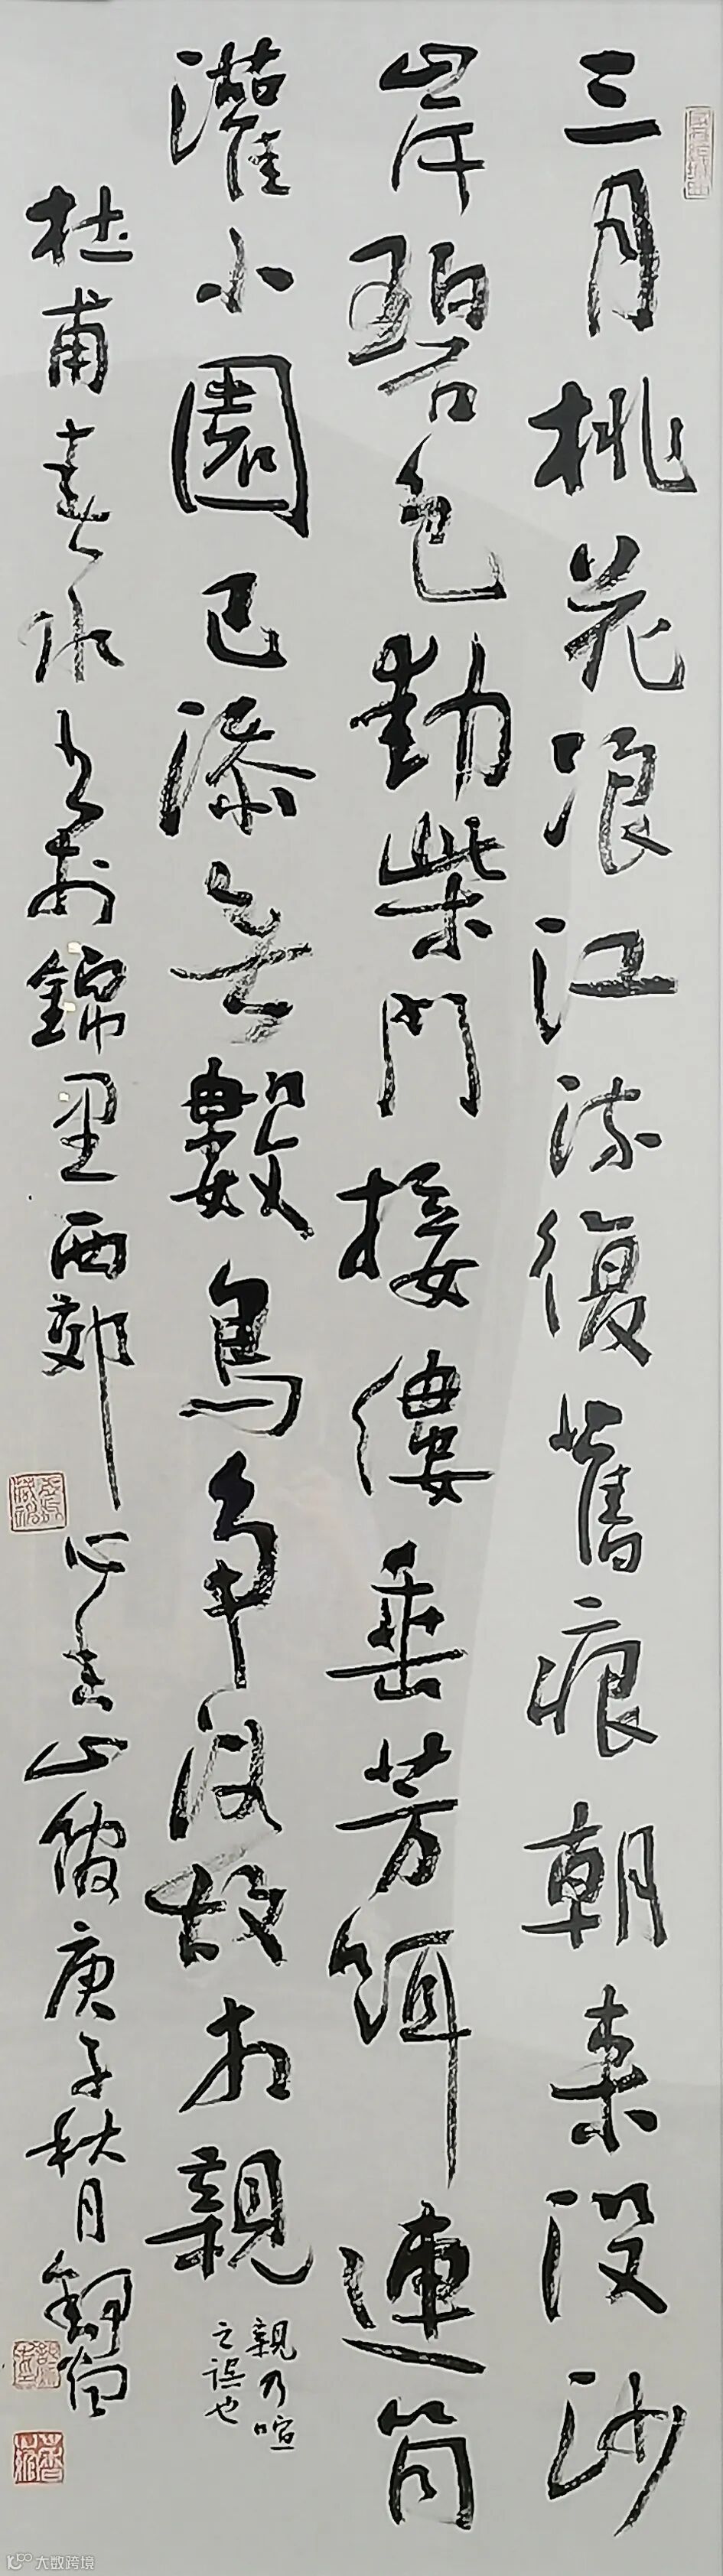 三月桃花浪江流復舊痕朝来没沙
岸碧色動柴門接縷垂芳餌連筒
灌小園已添無數鳥争浴故相親
親乃喧
之誤也
杜甫春水书於錦里西郊 山館庚子秋月
大数跨境